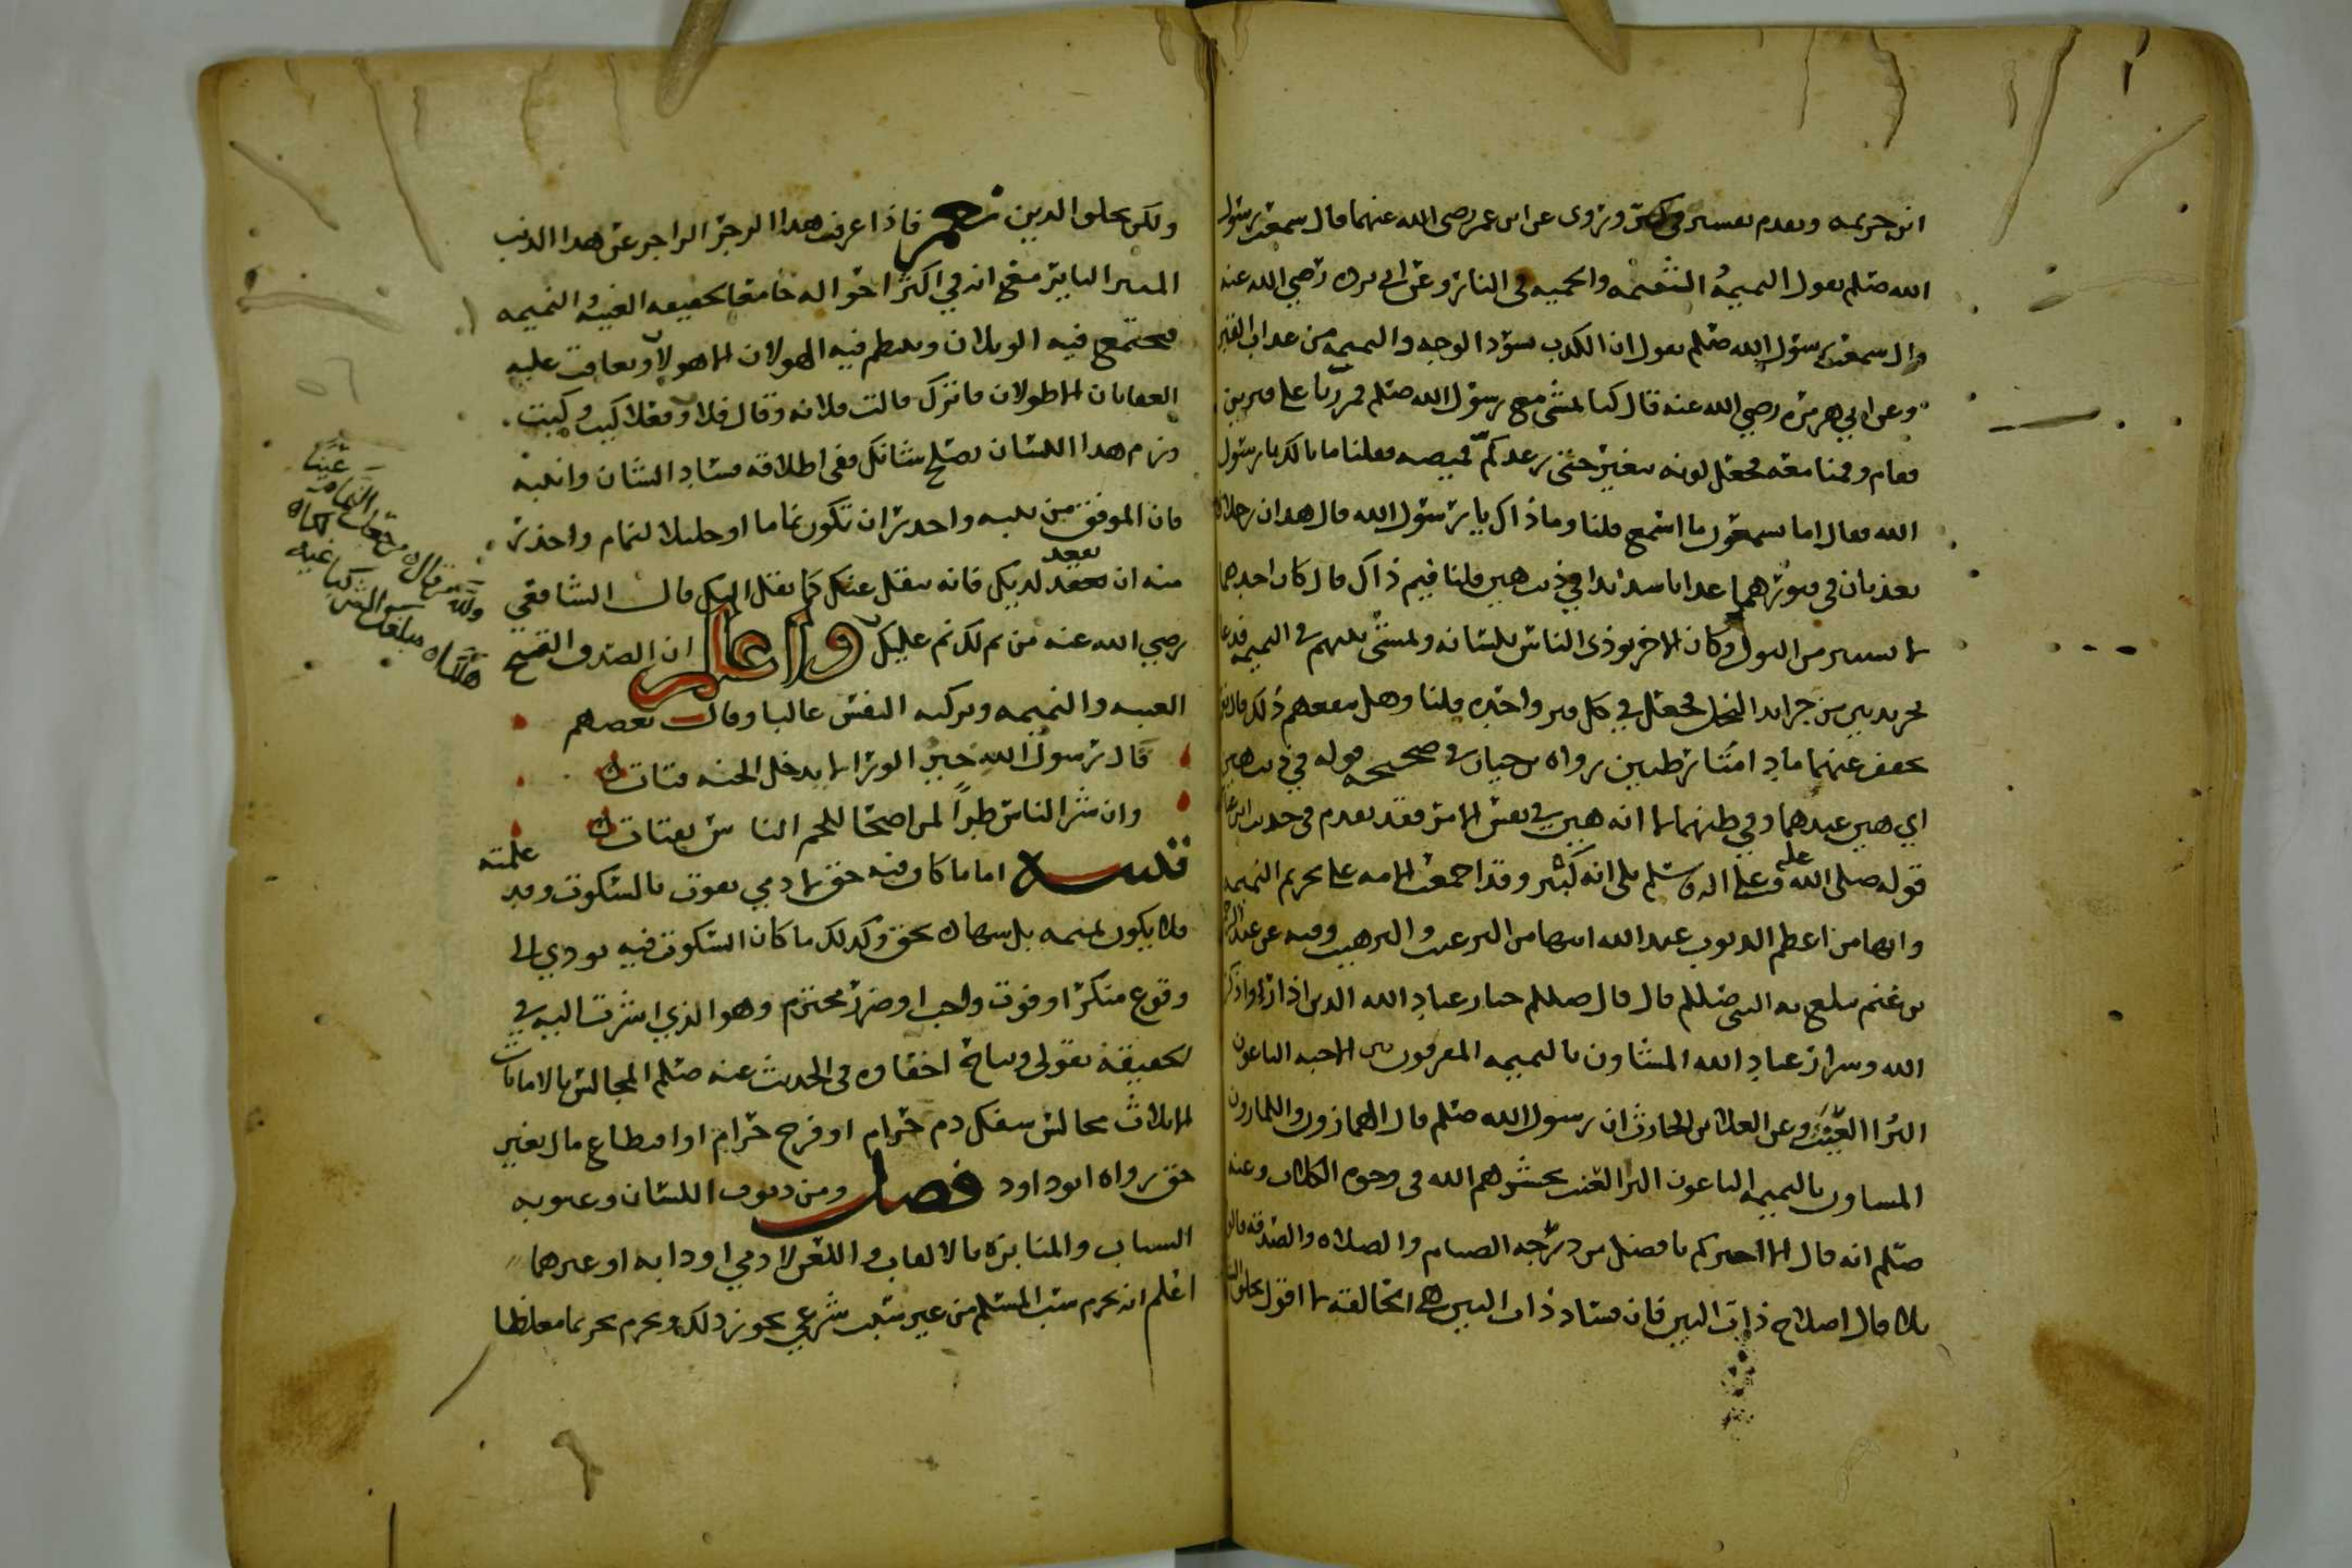 ابن خزيمه وتقدم تفسير وتروى عن ابن عمر رضي الله عنهما قال سمعت رسول
الله صلم يقول النميمة الشتيمه والحميه في النار وعن ابي برده رضي الله عنه
قال سمعت رسول الله صلم يقول ان الكذب يسود الوجه والنميمه من عذاب القبر
وعن ابي هريره رضي الله عنه قال كنا نمشي مع رسول الله صلم فمررنا على قبرين
فقام وقمنا معه فجعل لونه يتغير حتى رعد كم قميصه فقلنا ما بالك يا رسول
الله فقال اما تسمعون ما اسمع قلنا وما ذاك يا رسول الله قال هذان رجلان
يعذبان في قبورهما عذابا شديدا في ذنب هين قلنا فيم ذاك قال كان احدهما
لا يستتر من البول وكان الاخر يوذي الناس بلسانه ويمشي بينهم في النميمه فدعا
بجريدتين من جرايد النخل فجعل في كل قبر واحده قلنا وهل ينفعهم ذلك قال نعم
يخفف عنهما ما دامتا رطبين رواه بن حبان في صحيحه قوله في ذنب هين
اي هين عندهما وفي ظنهما لا انه هين في نفس الامر فقد تقدم في حديث ابن عباس
قوله صلى الله عليه وعلى اله وسلم بلى انه كبير وقد اجمعت الامه على تحريم النميمه
وانها من اعظم الذنوب عند الله انتهى من الترغيب والترهيب وفيه عن عبد الرحمن
بن غنم يبلغ به النبي صلم قال قال صلم خيار عباد الله الذين اذا راوا ذكر
الله وشرار عباد الله المشاون بالنميمه المفرقون بين الاحبه الباغون
البرا العنت وعن العلا بن الحارث ان رسول الله صلم قال الهمازون واللمازون
المشاون بالنميمه الباغون البرا العنت يحشرهم الله في وجوه الكلاب وعنه
صلم انه قال الا اخبركم بافضل من درجه الصيام والصلاه والصدقه قالوا
بلى قال اصلاح ذات البين فان فساد ذات البين هي الحالقه لا اقول تحلق الشعر
ولكن تحلق الدين نعم فاذا عرفت هذا الزجر الزاجر عن هذا الذنب
الباير مع انه في اكثر احواله جامعا لحقيقه الغيبه النميمه
فيجتمع فيه الويلان ويلتطم فيه الهولان الاهولان ويعاقب عليه
العقابان الاطولان فاترك قالت فلانه وقال فلان وفعلا كيت وكيت
وزم هذا اللسان يصلح شانك ففي اطلاقه فساد الشان وانتبه
فان الموفق من ينتبه واحذر ان تكون نماما او خليلا لنمام واحذر
منه ان يقعد لديك فانه ينقل عنك كما نقل اليك قال الشافعي
رضي الله عنه من نم لك نم عليك واعلم ان الصدق القبيح
الغيبه والنميمه وتزكيه النفس غالبا وقال بعضهم
قال رسول الله خير الورا لا يدخل الجنه قتات
وان شر الناس طراً لمن اضحا للحم الناس يقتات
تنبيه اما ما كان فيه حق لادمي يفوت بالسكوت وقد علمته
فلا يكون نميمه بل شهاده بحق وكذلك ما كان السكوت فيه يودي الى
وقوع منكر او فوت واجب او ضرر محترم وهو الذي اشرت اليه في
الحقيقة بقولي ويباح اخفاوه في الحديث عنه صلم المجالس بالامانات
الا ثلاث مجالس سفك دم حرام او فرج حرام او اقتطاع مال بغير
حق رواه ابو داود فصل ومن ذنوب اللسان وعيوبه
السباب والمنابزه بالالقاب واللعن لادمي او دابه او غيرهما
اعلم انه يحرم سب المسلم من غير سبب شرعي يجوز ذلك ويحرم تحريما مغلظا